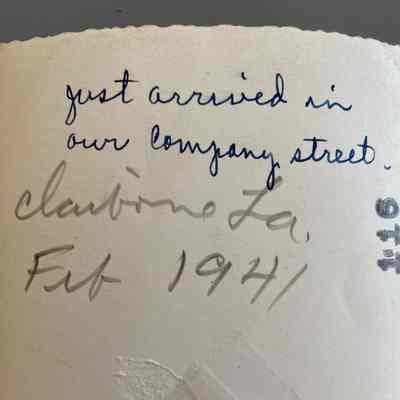 just arrived in
our Company street.
Claiborne La.
Feb 1941
116